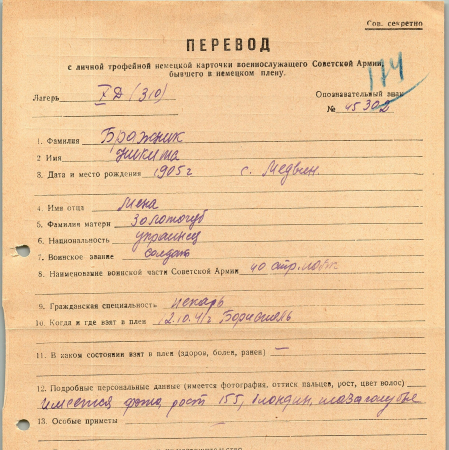 Сов. секретно
ПЕРЕВОД
с личной трофейной немецкой карточки военнослужащего Советской Армии,
бывшего в немецком плену.
174
Лагерь X Д (310)
Опознавательный знак
№ 45302
1. Фамилия Бражник
2 Имя Никита
3. Дата и место рождения 1905 г с. Медвин.
4. Имя отца
5. Фамилия матери Золотогуб
6. Национальность украинец
7. Воинское звание солдат
8. Наименование воинской части Советской Армии 40 стр. полк
9. Гражданская специальность пекарь
10. Когда и где взят в плен 2.10.41 г Борисполь
11. В каком состоянии взят в плен (здоров, болен, ранен) —
12. Подробные персональные данные (имеется фотография, оттиск пальцев, рост, цвет волос)
Имеется фото, рост 155, блондин, глаза голубые
13. Особые приметы